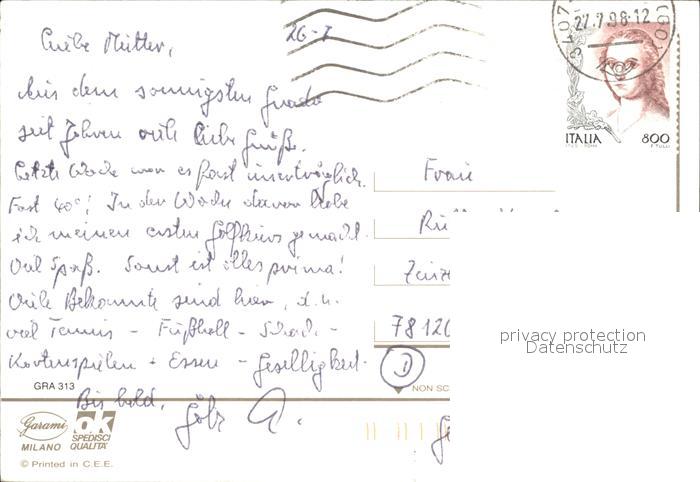 26-7
Liebe Mutter,
Aus dem sonnigsten Grado
seit Jahren viele liebe Grüße.
Letzte Woche war es fast unerträglich.
Fast 40°! In der Woche davor habe
ich meinen ersten Golfkurs gemacht.
Viel Spaß. Sonst ist alles prima!
Viele Bekannte sind hier, d.h.
viel Tennis - Fußball - Schach -
Kartenspielen + Essen - Geselligkeit.
Bis bald,
27.7.98-12
ITALIA 800
Frau
78120
D
privacy protection
Datenschutz
GRA 313
NON SC
Garami
MILANO
ok
SPEDISCI
QUALITÀ
© Printed in C.E.E.